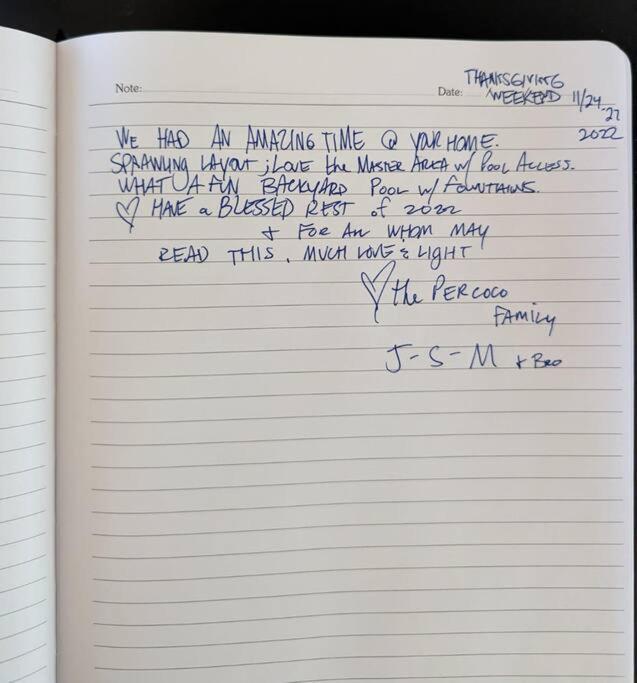 Note:
Date: THANKSGIVING
WEEKEND 11/24-27
2022
WE HAD AN AMAZING TIME @ YOUR HOME.
SPRAWLING LAYOUT; LOVE the MASTER AREA w/ POOL ACCESS.
WHAT A FUN BACKYARD POOL w/ FOUNTAINS.
♡ HAVE a BLESSED REST of 2022
+ FOR All WHOM MAY
READ THIS, MUCH LOVE & LIGHT
♡ the PERCOCO
FAMILY
J-S-M + Bro